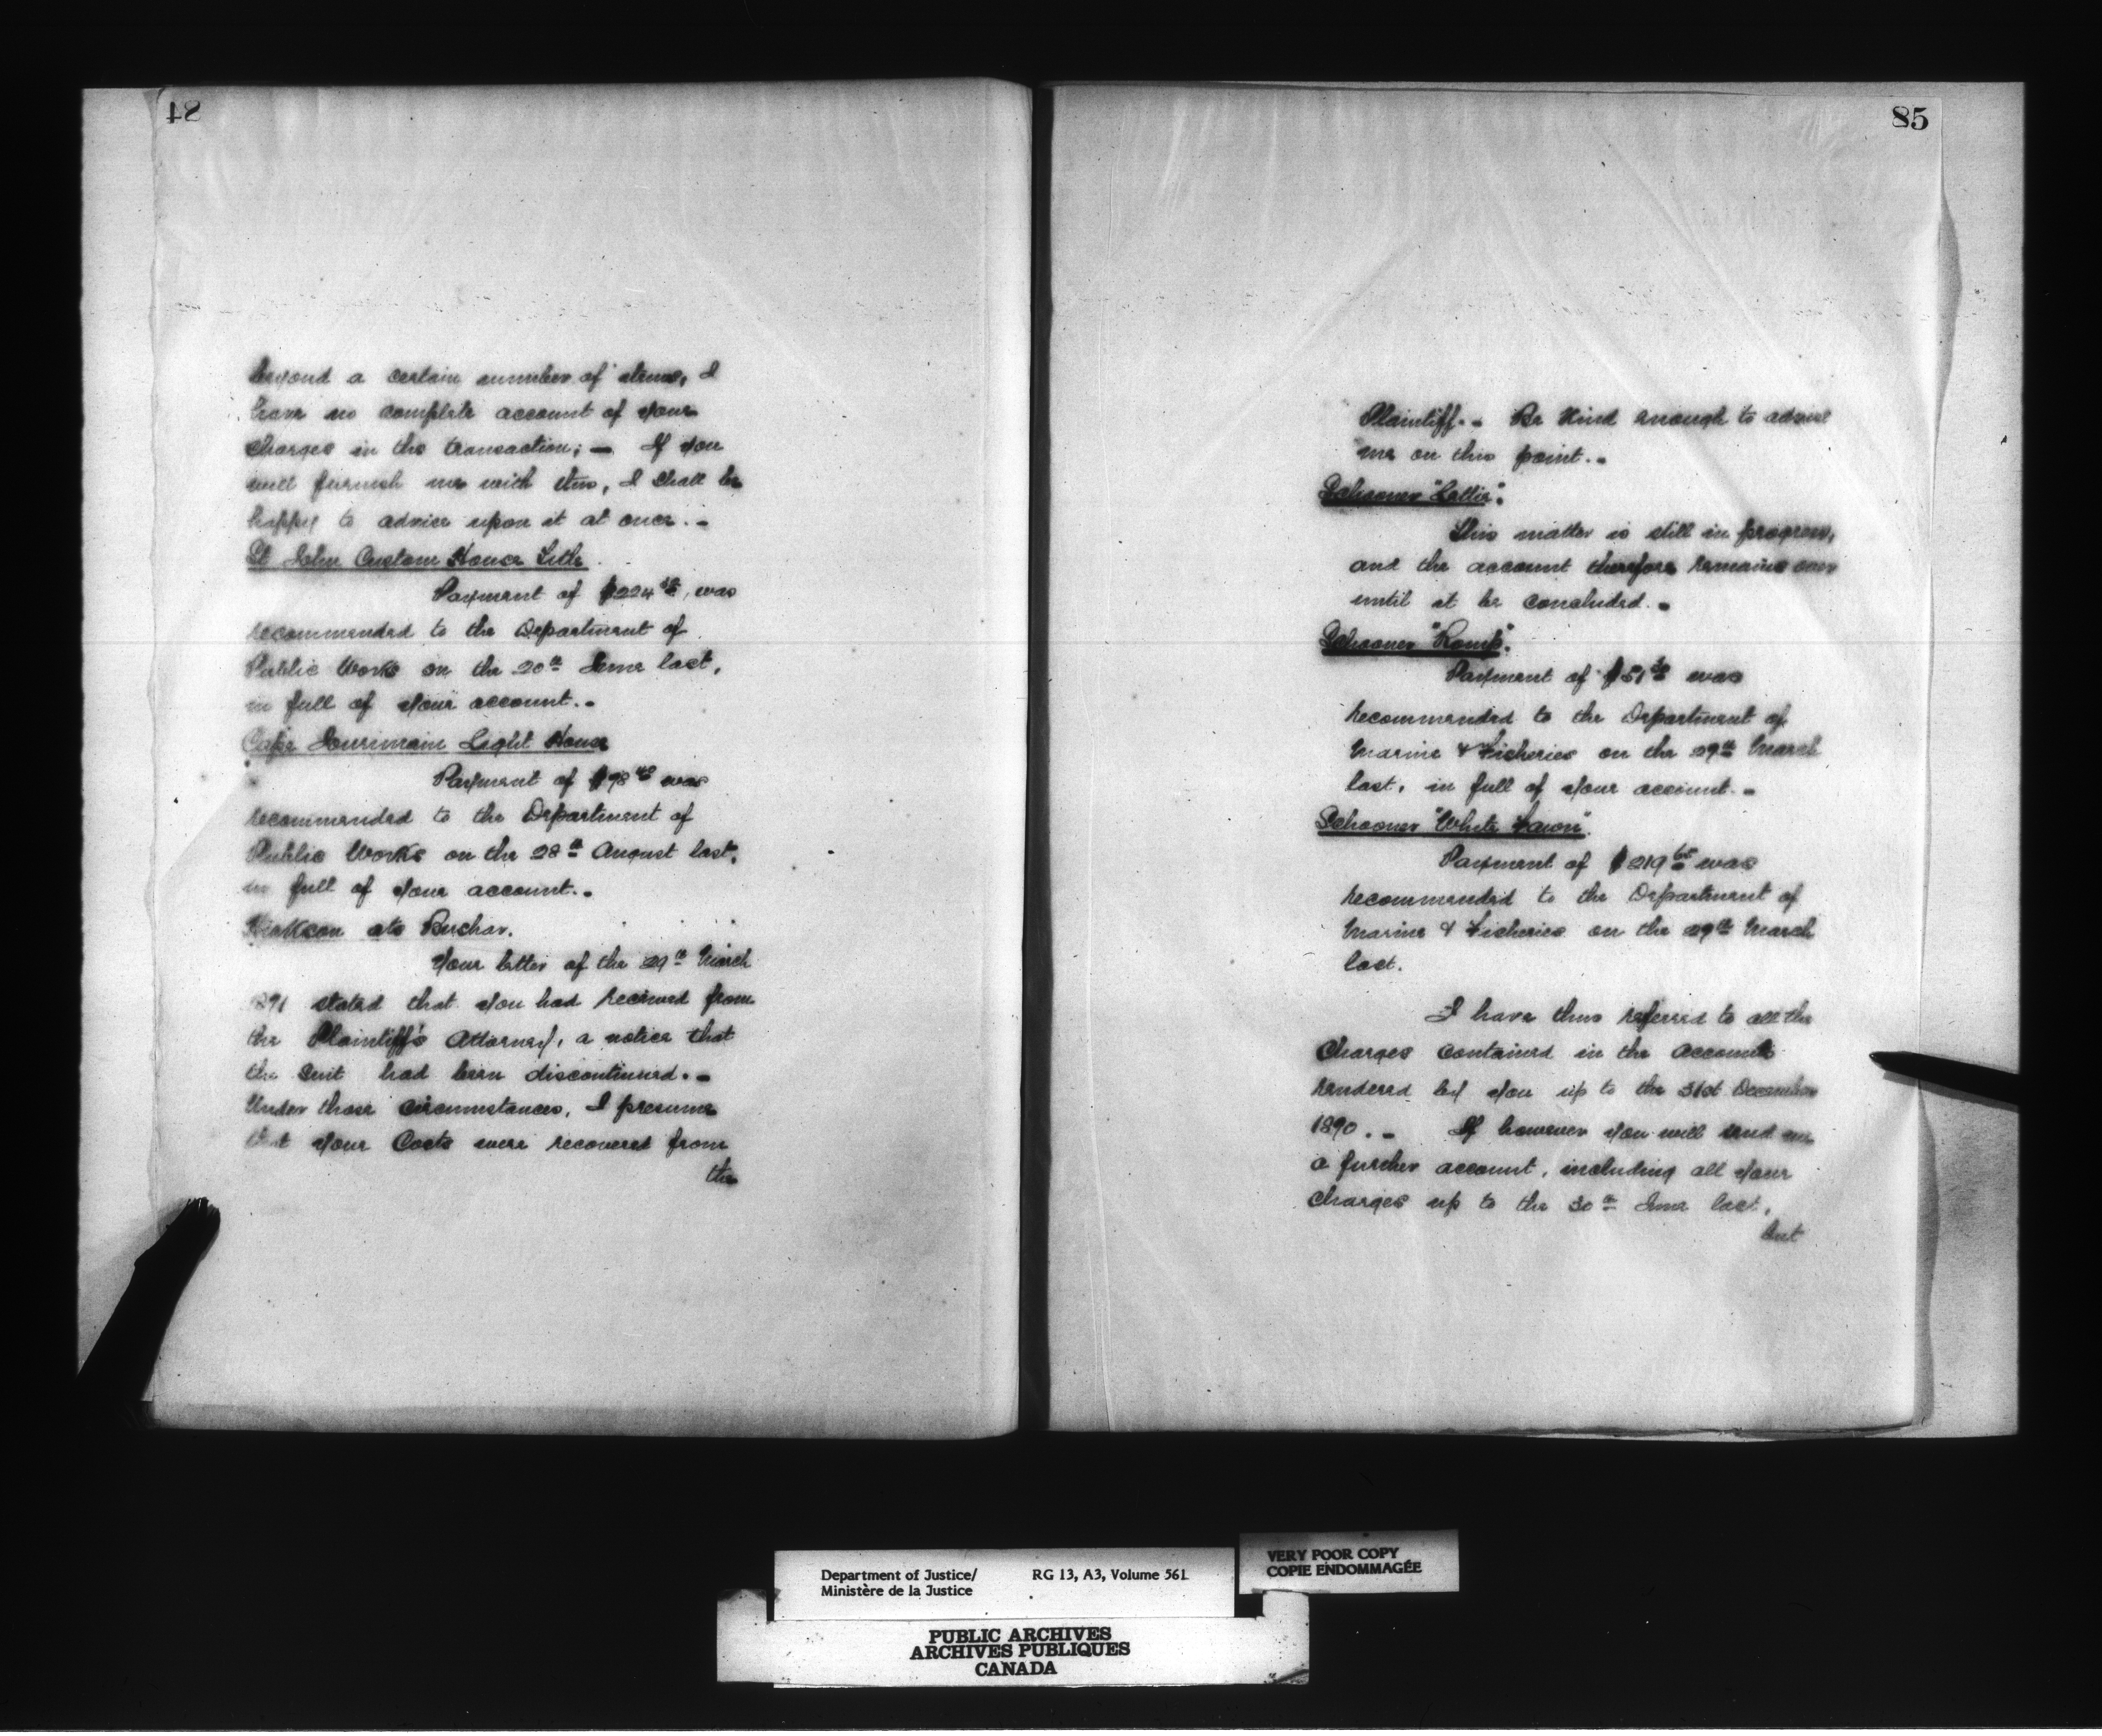 84
beyond a certain number of items, I
have no complete account of your
Charges in the transaction; — If you
will furnish me with this, I shall be
happy to advise upon it at once. –
St John Custom House Title
Payment of $224 was
recommended to the Department of
Public Works on the 20th June last,
in full of your account. –
Cape Jourimain Light House
Payment of $98 40 was
recommended to the Department of
Public Works on the 28th August last,
in full of your account. –
ats Buchar.
Your letter of the 29th March
1891 stated that you had received from
the Plaintiff's Attorney, a notice that
the suit had been discontinued. –
Under those circumstances, I presume
that your Costs were recovered from
the
85
Plaintiff. – Be Kind enough to advise
me on this point. –
Schooner "Lettie".
This matter is still in progress,
and the account therefore remains over
until it be concluded. –
Schooner
Payment of $51 was
recommended to the Department of
Marine & Fisheries on the 29th March
last, in full of your account. –
Schooner "White Fawn".
Payment of $219 was
recommended to the Department of
Marine & Fisheries on the 29th March
last.
I have thus referred to all the
Charges contained in the Accounts
rendered by you up to the 31st December
1890. – If however you will send me
a further account, including all your
Charges up to the 30th June last,
but
Department of Justice/
Ministère de la Justice
RG 13, A3, Volume 561
VERY POOR COPY
COPIE ENDOMMAGÉE
PUBLIC ARCHIVES
ARCHIVES PUBLIQUES
CANADA